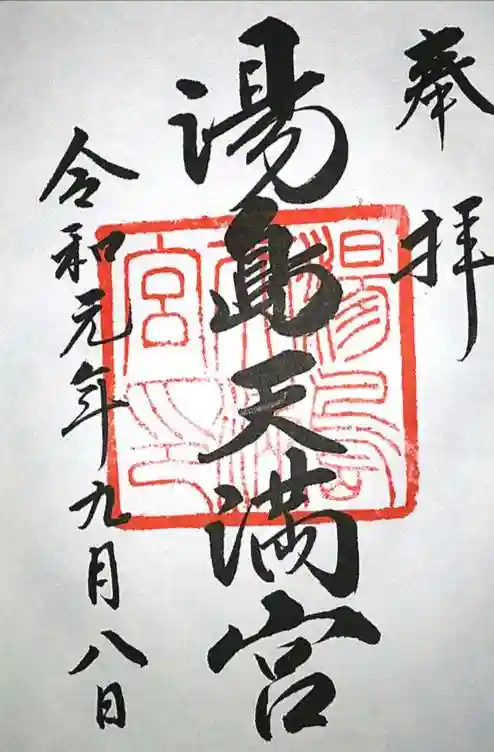 奉拝
湯島天満宮
令和元年九月八日
湯島
天神
宮印